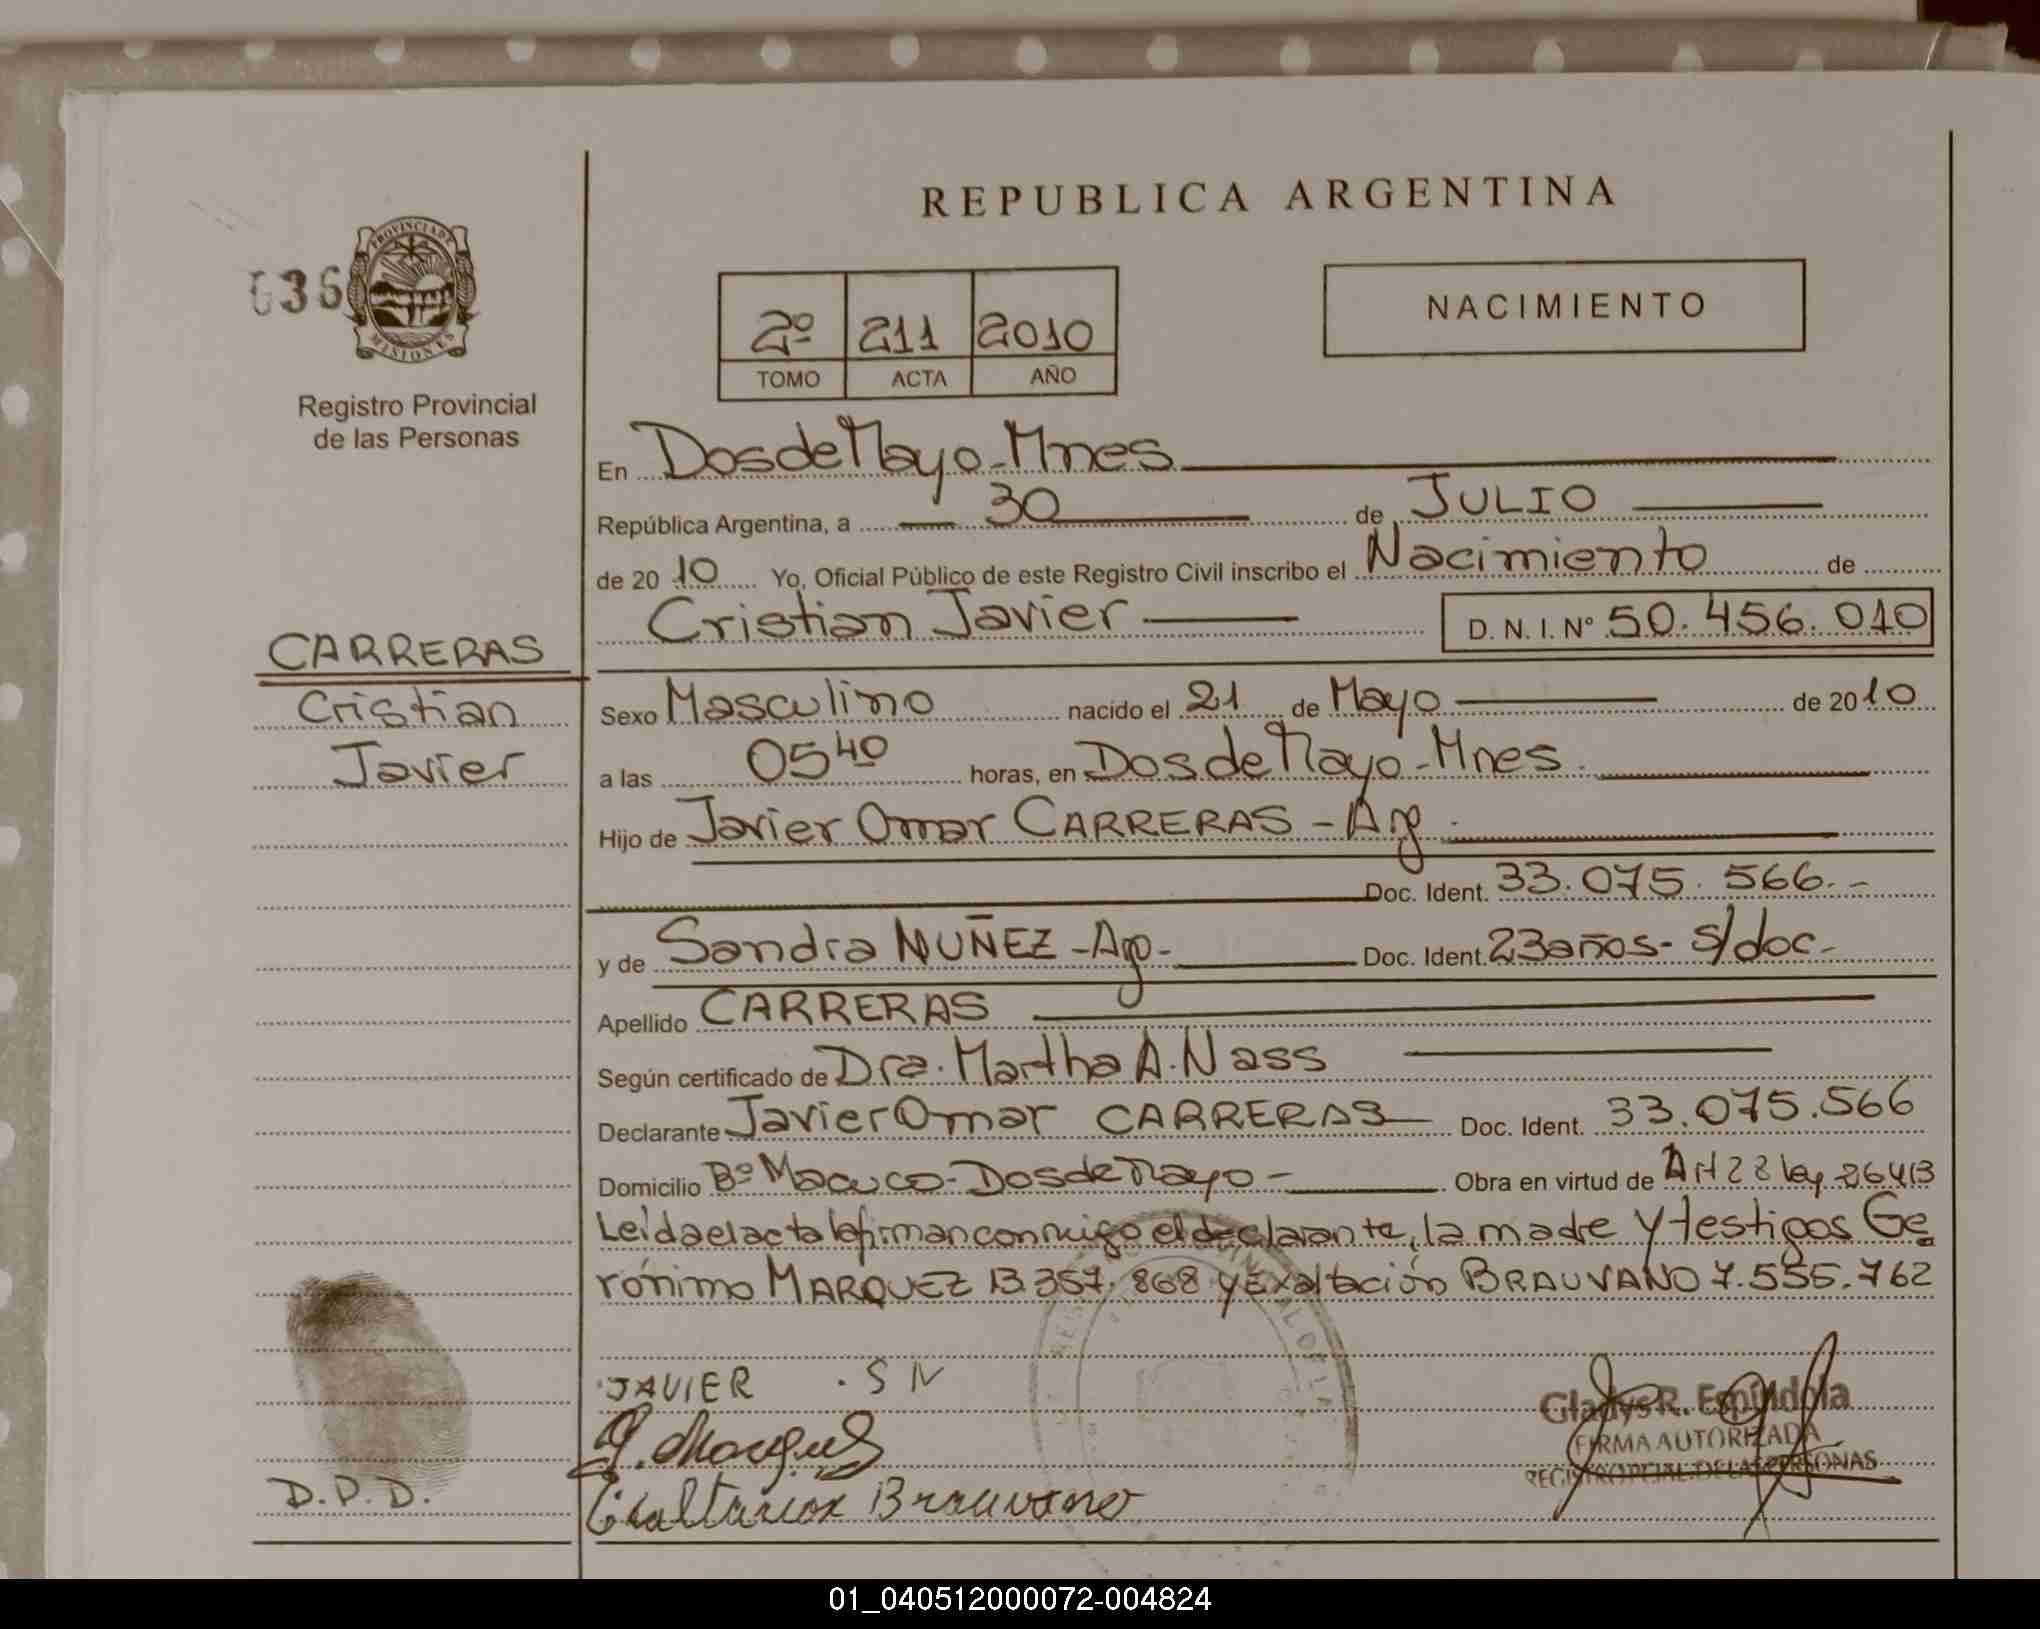 REPUBLICA ARGENTINA
036
PROVINCIA DE
MISIONES
Registro Provincial
de las Personas
2º 211 2010
TOMO ACTA AÑO
NACIMIENTO
En Dos de Mayo - Mnes
República Argentina, a 30 de JULIO
de 20 10 Yo, Oficial Público de este Registro Civil inscribo el Nacimiento de
Cristian Javier D. N. I. Nº 50.456.010
CARRERAS
Cristian
Javier
Sexo Masculino nacido el 21 de Mayo de 20 10
a las 05 40 horas, en Dos de Mayo - Mnes.
Hijo de Javier Omar CARRERAS - Arg.
Doc. Ident. 33.075.566.-
y de Sandra NUÑEZ - Arg.- Doc. Ident. 23 años - s/doc-
Apellido CARRERAS
Según certificado de Dra. Martha A. Nass
Declarante Javier Omar CARRERAS Doc. Ident. 33.075.566
Domicilio Bº Macuco - Dos de Mayo - Obra en virtud de Art 28 ley 26413
Leida el acta la firman conmigo el declarante, la madre y testigos Ge
rónimo MARQUEZ 13.357.868 y Exaltación BRAUVANO 7.555.762
JAVIER . S N
Brauvano
D.P.D.
Gladys R. Espíndola
FIRMA AUTORIZADA
REGISTRO PCIAL. DE LAS PERSONAS
01_040512000072-004824